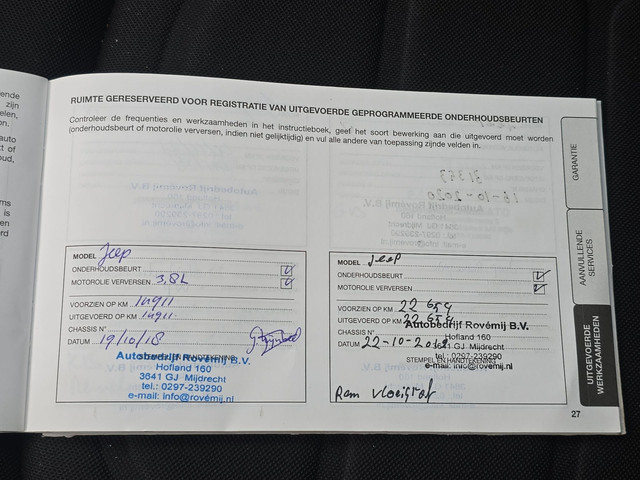 ende
zijn
elen,
on.
auto
t of
oud,
ms
is
en
rd
RUIMTE GERESERVEERD VOOR REGISTRATIE VAN UITGEVOERDE GEPROGRAMMEERDE ONDERHOUDSBEURTEN
Controleer de frequenties en werkzaamheden in het instructieboek, geef het soort bewerking aan die uitgevoerd moet worden
(onderhoudsbeurt of motorolie verversen, indien niet gelijktijdig) en vul alle andere van toepassing zijnde velden in.
MODEL Jeep
ONDERHOUDSBEURT
MOTOROLIE VERVERSEN 3,8L
VOORZIEN OP KM
UITGEVOERD OP KM
CHASSIS N°
DATUM 19/10/18
STEMPEL EN HANDTEKENING
Autobedrijf Rovémij B.V.
Hofland 160
3641 GJ Mijdrecht
tel.: 0297-239290
e-mail: info@rovémij.nl
MODEL Jeep
ONDERHOUDSBEURT
MOTOROLIE VERVERSEN
VOORZIEN OP KM 22 654
UITGEVOERD OP KM 22 654
CHASSIS N°
DATUM 22-10-2019
STEMPEL EN HANDTEKENING
Autobedrijf Rovémij B.V.
Hofland 160
3641 GJ Mijdrecht
tel.: 0297-239290
e-mail: info@rovémij.nl
Rem vloeistof
GARANTIE
AANVULLENDE
SERVICES
UITGEVOERDE
WERKZAAMHEDEN
27